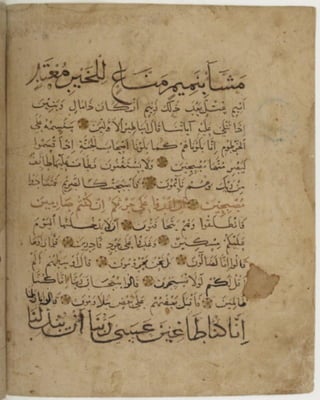 مشاء بنميم مناع للخير معتد
اثيم عتل بعد ذلك زنيم ان كان ذا مال وبنين
اذا تتلى عليه آياتنا قال اساطير الاولين سنسمه على
الخرطوم انا بلوناهم كما بلونا اصحاب الجنة اذ اقسموا
ليصرمنها مصبحين ولا يستثنون فطاف عليها طائف
من ربك وهم نائمون فاصبحت كالصريم فتنادوا
مصبحين ان اغدوا على حرثكم ان كنتم صارمين
فانطلقوا وهم يتخافتون ان لا يدخلنها اليوم
عليكم مسكين وغدوا على حرد قادرين فلما راوها
قالوا انا لضالون بل نحن محرومون قال اوسطهم الم
اقل لكم لولا تسبحون قالوا سبحان ربنا انا كنا
ظالمين فاقبل بعضهم على بعض يتلاومون قالوا ياويلنا
انا كنا طاغين عسى ربنا ان يبدلنا